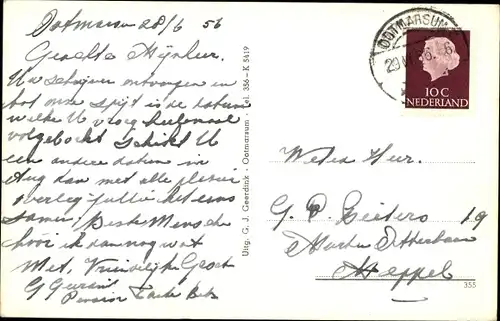 Ootmarsum 28/6 56
Geachte Mijnheer.
Uw schrijven ontvangen en
tot onze spijt is de datum
welke U vroeg helemaal
volgeboekt schikt U
een andere datum in
Aug dan met alle plezier
overleg jullie het eens
samen, Beste Mensen
hoor ik dan nog wat
Met, Vriendelijke Groet
Pension
Uitg. G. J. Geerdink - Ootmarsum - Tel. 356 - K 5419
OOTMARSUM
10 C
NEDERLAND
Weled Heer.
G. P. 19
Meppel
355